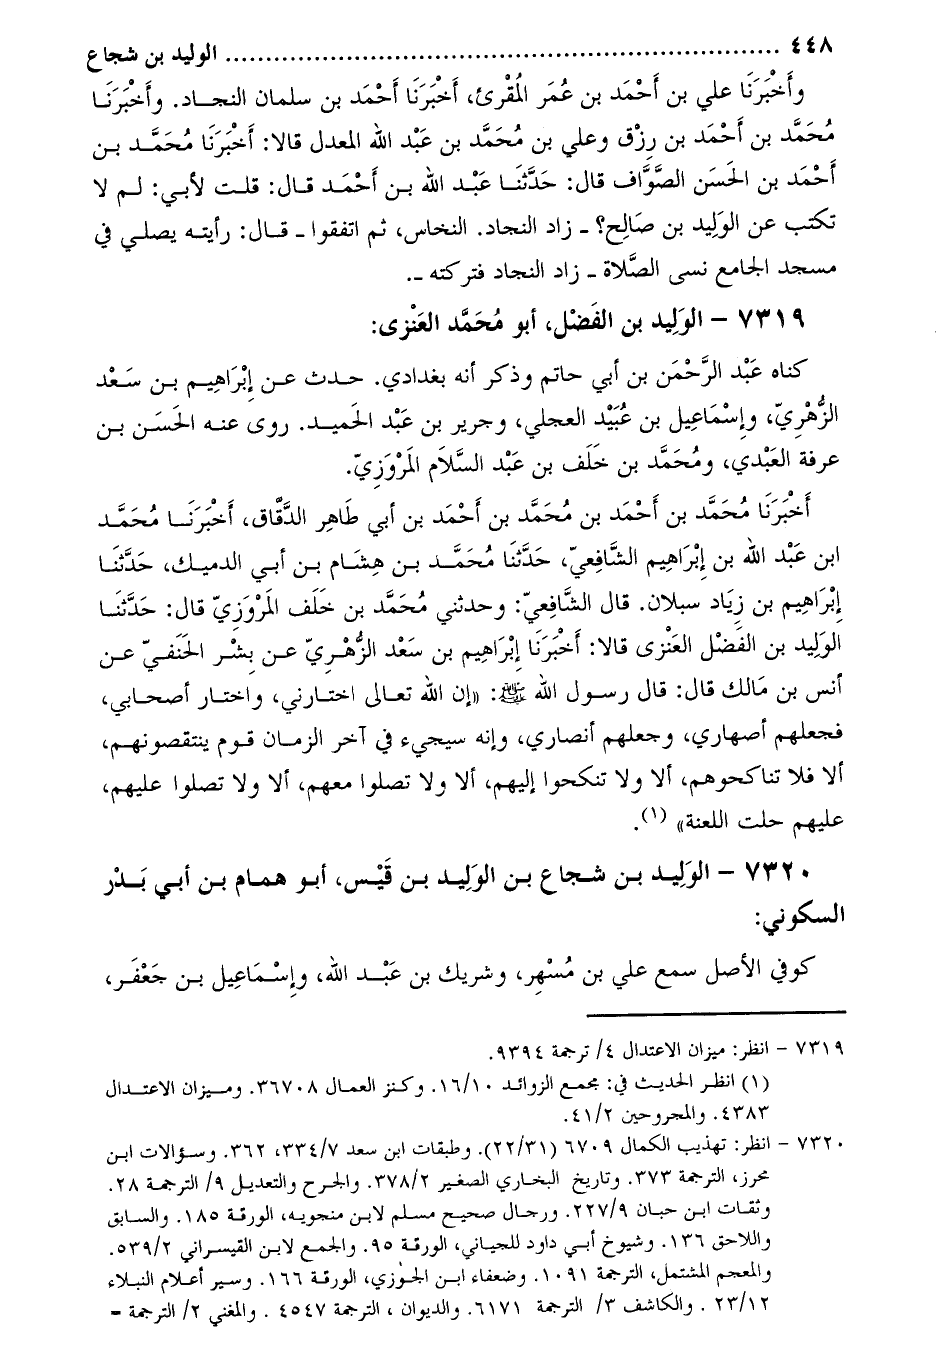 ٤٤٨ ........................................................................ الوليد بن شجاع
وأَخْبَرَنَا علي بن أَحْمَد بن عُمَر المُقْرئ، أَخْبَرَنَا أَحْمَد بن سلمان النجاد. وأَخْبَرَنَا
مُحَمَّد بن أَحْمَد بن رِزْق وعلي بن مُحَمَّد بن عَبْد الله المعدل قالا: أَخْبَرَنَا مُحَمَّد بن
أَحْمَد بن الحَسَن الصَّوَّاف قال: حَدَّثَنَا عَبْد الله بن أَحْمَد قال: قلت لأبي: لم لا
تكتب عن الوَلِيد بن صَالِح؟ ـ زاد النجاد. النخاس، ثم اتفقوا ـ قال: رأيته يصلي في
مسجد الجامع نسى الصَّلاة ـ زاد النجاد فتركته ـ.
٧٣١٩ – الوَلِيد بن الفَضْل، أبو مُحَمَّد العَنْزى:
كناه عَبْد الرَّحْمَن بن أبي حاتم وذكر أنه بغدادي. حدث عن إِبْرَاهِيم بن سَعْد
الزُّهْرِيّ، وإسْمَاعِيل بن عُبَيْد العجلي، وجرير بن عَبْد الحَميد. روى عنه الحَسَن بن
عرفة العَبْدي، ومُحَمَّد بن خَلَف بن عَبْد السَّلاَم المَرْوَزِيّ.
أَخْبَرَنَا مُحَمَّد بن أَحْمَد بن مُحَمَّد بن أَحْمَد بن أبي طَاهِر الدَّقَّاق، أَخْبَرَنَا مُحَمَّد
ابن عَبْد الله بن إِبْرَاهِيم الشَّافِعيّ، حَدَّثَنَا مُحَمَّد بن هِشَام بن أبي الدميك، حَدَّثَنَا
إِبْرَاهِيم بن زِيَاد سبلان. قال الشَّافِعِيّ: وحدثني مُحَمَّد بن خَلَف المَرْوَزِيّ قال: حَدَّثَنَا
الوَلِيد بن الفَضْل العَنْزى قالا: أَخْبَرَنَا إِبْرَاهِيم بن سَعْد الزُّهْرِيّ عن بِشْر الحَنَفيّ عن
أنس بن مَالك قال: قال رسول الله ﷺ: «إن الله تعالى اختارني، واختار أصحابي،
فجعلهم أصهاري، وجعلهم أنصاري، وإنه سيجيء في آخر الزمان قوم ينتقصونهم،
ألا فلا تناكحوهم، ألا ولا تنكحوا إليهم، ألا ولا تصلوا معهم، ألا ولا تصلوا عليهم،
عليهم حلت اللعنة» (١).
٧٣٢٠ – الوَلِيد بن شجاع بن الوَلِيد بن قَيْس، أبو همام بن أبي بَدْر
السكوني:
كوفي الأصل سمع علي بن مُسْهِر، وشريك بن عَبْد الله، وإسْمَاعِيل بن جَعْفَر،
٧٣١٩ – انظر: ميزان الاعتدال ٤/ ترجمة ٩٣٩٤.
(١) انظر الحديث في: مجمع الزوائد ١٦/١٠. وكنز العمال ٣٦٧٠٨. وميزان الاعتدال
٤٣٨٣. والمجروحين ٤١/٢.
٧٣٢٠ – انظر: تهذيب الكمال ٦٧٠٩ (٢٢/٣١). وطبقات ابن سعد ٣٣٤/٧، ٣٦٢. وسؤالات ابن
محرز، الترجمة ٣٧٣. وتاريخ البخاري الصغير ٣٧٨/٢. والجرح والتعديل ٩/ الترجمة ٢٨.
وثقات ابن حبان ٢٢٧/٩. ورجال صحيح مسلم لابن منجويه، الورقة ١٨٥. والسابق
واللاحق ١٣٦. وشيوخ أبي داود للجياني، الورقة ٩٥. والجمع لابن القيسراني ٥٣٩/٢.
والمعجم المشتمل، الترجمة ١٠٩١. وضعفاء ابن الجوزي، الورقة ١٦٦. وسير أعلام النبلاء
٢٣/١٢ . والكاشف ٣/ الترجمة ٦١٧١. والديوان ، الترجمة ٤٥٤٧ . والمغني ٢/ الترجمة =